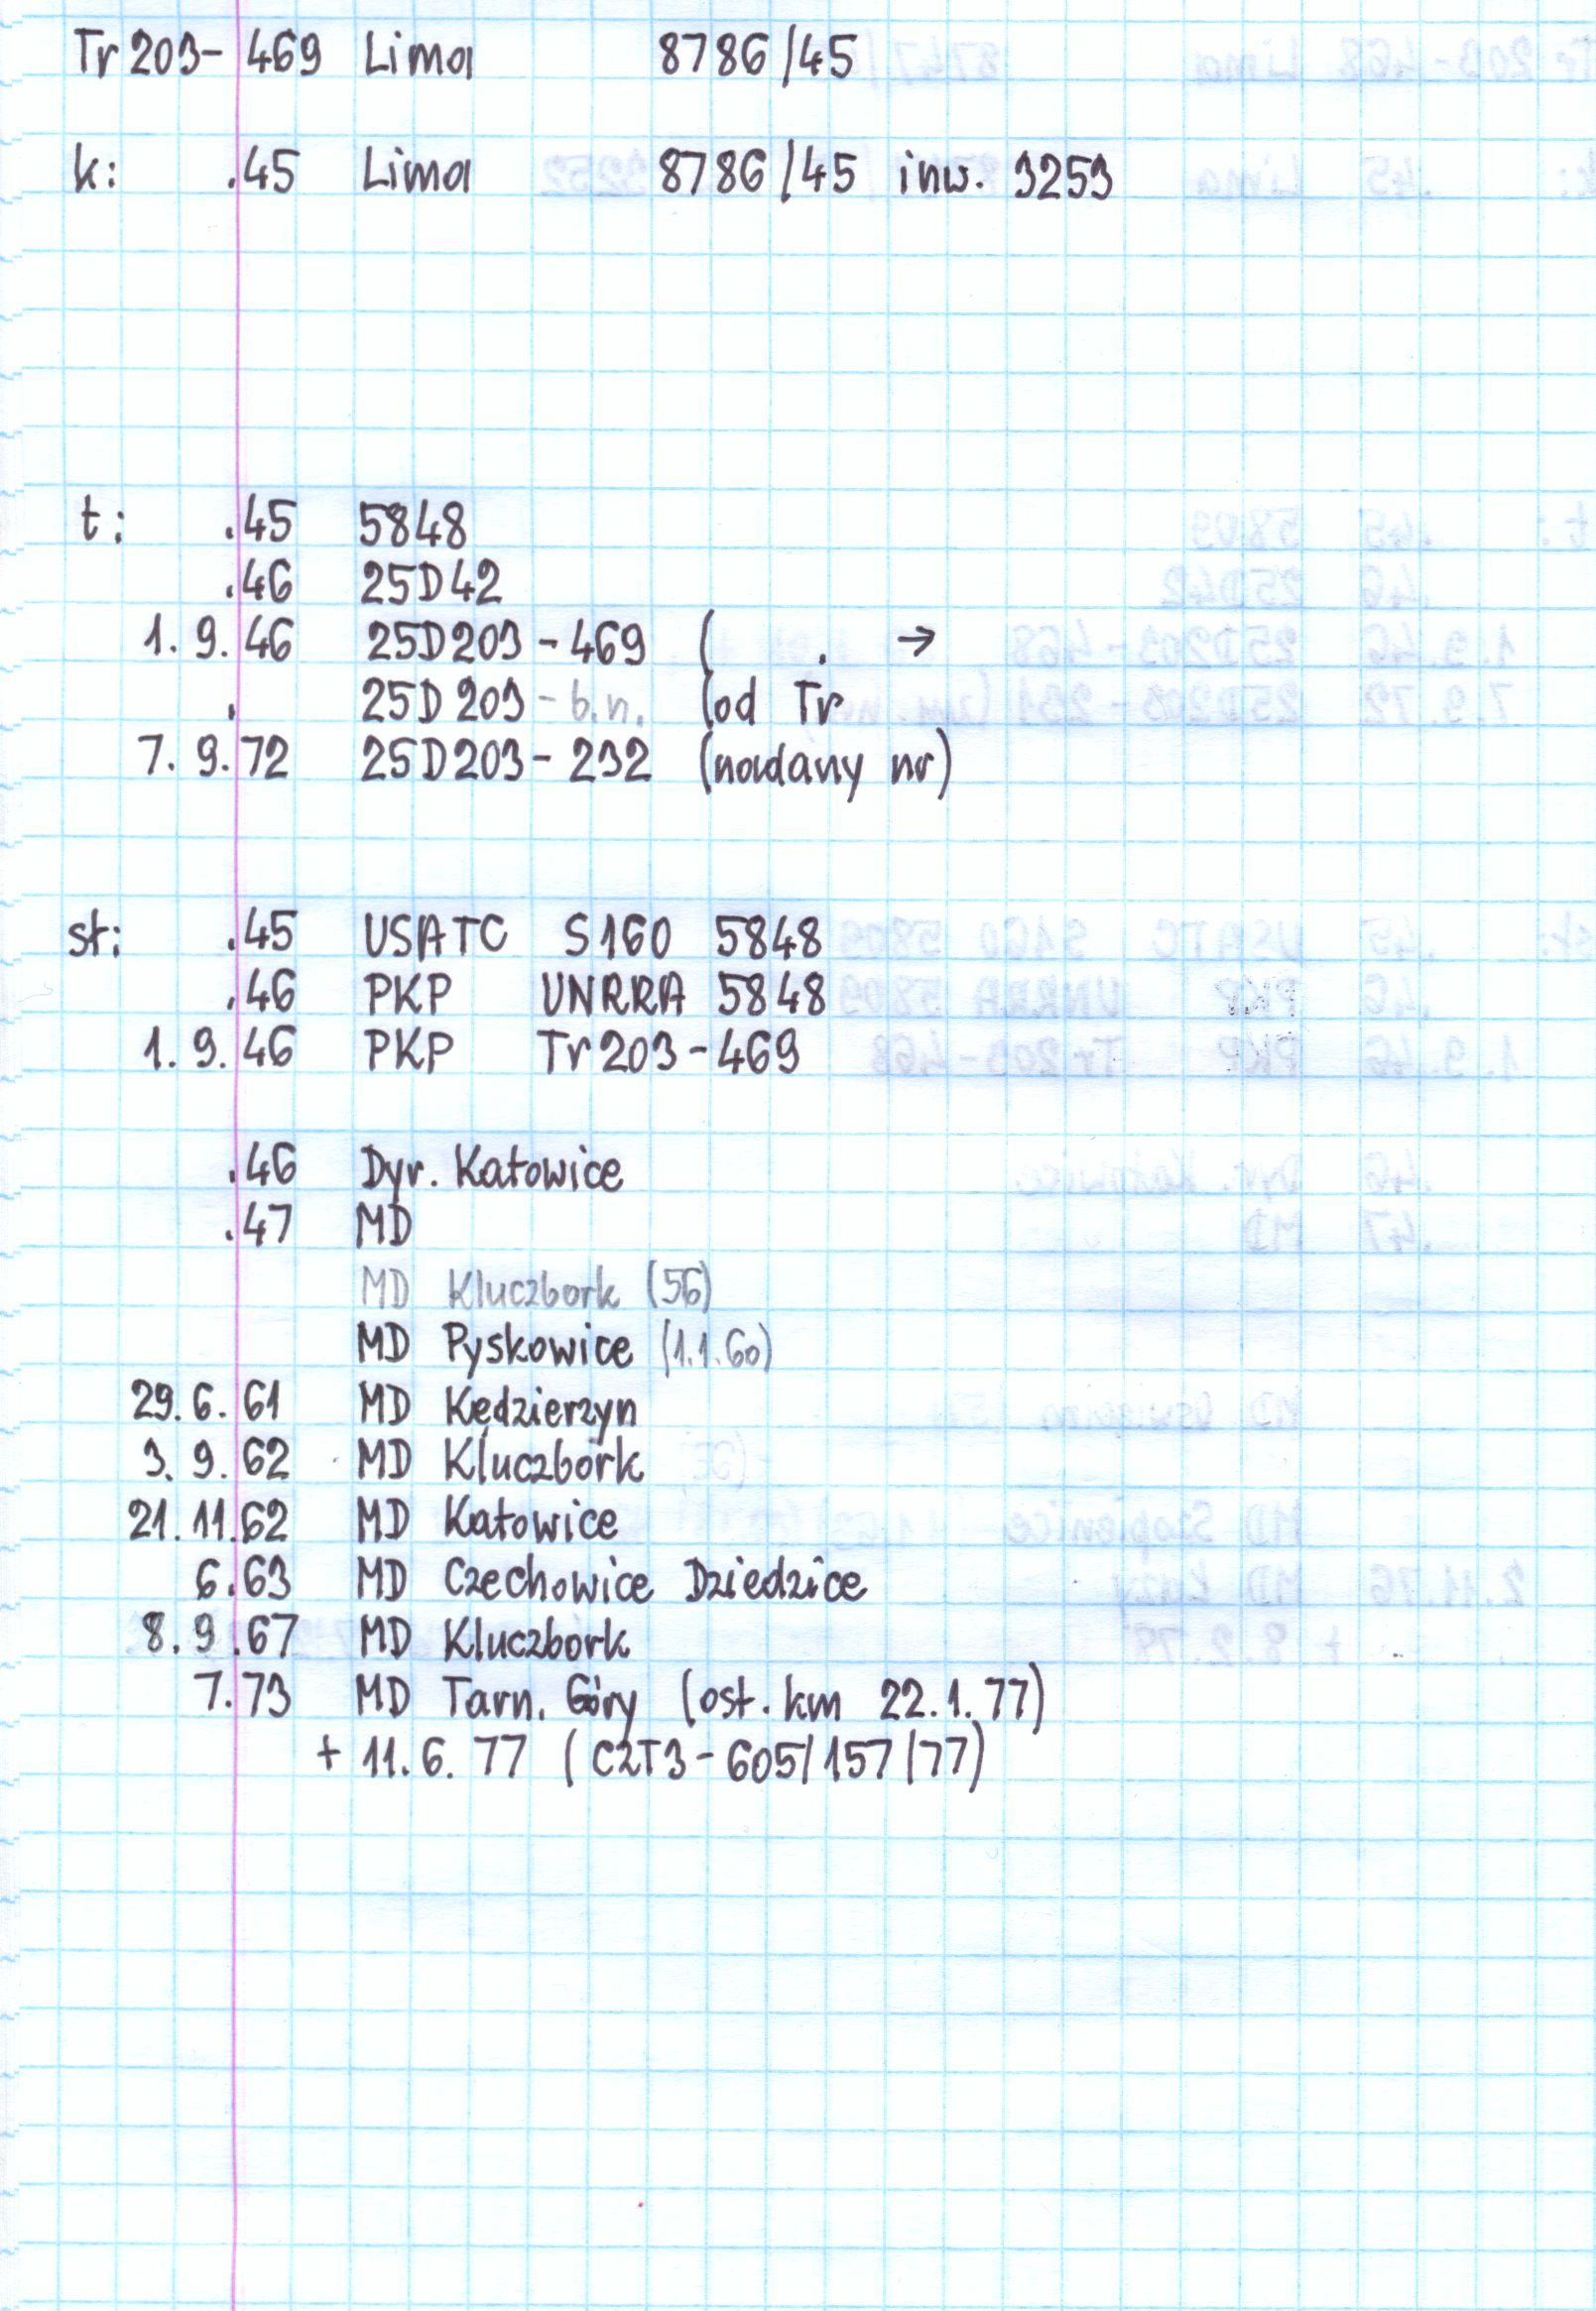 Tr 203-469 Lima 8786/45
k: .45 Lima 8786/45 inw. 3253
t: .45 5848
.46 25D42
1. 9. 46 25D203-469 ( . →
. 25D203-b.n. (od Tr
7. 9. 72 25D203-232 (nadany nr)
st: .45 USATC S160 5848
.46 PKP UNRRA 5848
1. 9. 46 PKP Tr203-469
.46 Dyr. Katowice
.47 MD
MD Kluczbork (56)
MD Pyskowice (1.1.60)
29. 6. 61 MD Kędzierzyn
3. 9. 62 MD Kluczbork
21. 11. 62 MD Katowice
6. 63 MD Czechowice Dziedzice
8. 9. 67 MD Kluczbork
7. 73 MD Tarn. Góry (ost. km 22.1.77)
+ 11. 6. 77 (C2T3-605/157/77)